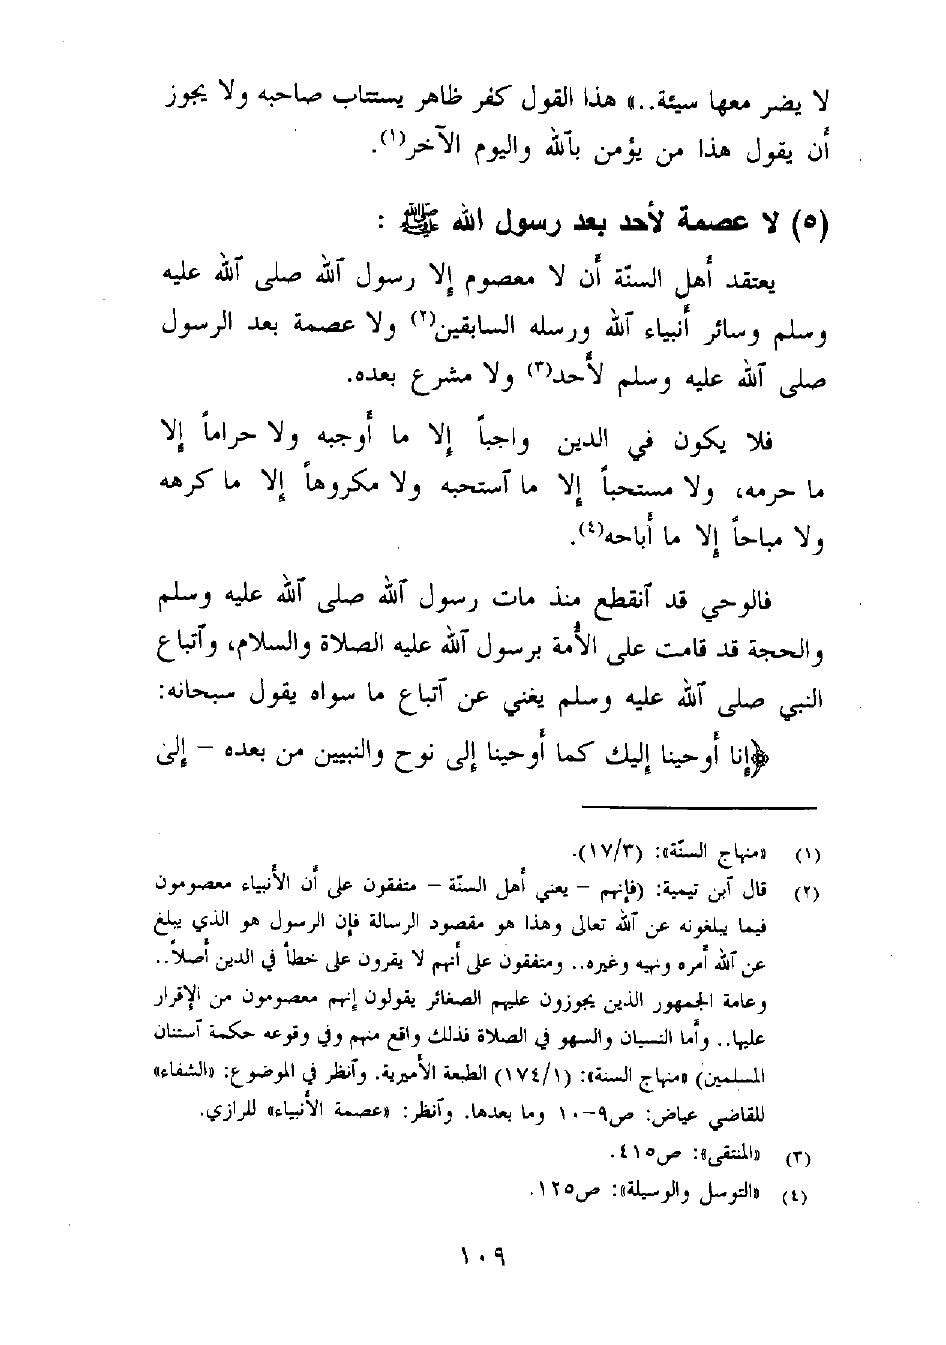 لا يضر معها سيئة..» هذا القول كفر ظاهر يستتاب صاحبه ولا يجوز
أن يقول هذا من يؤمن بٱلله واليوم الآخر(١).
(٥) لا عصمة لأحد بعد رسول الله ﷺ :
يعتقد أهل السنّة أن لا معصوم إلا رسول ٱلله صلى ٱلله عليه
وسلم وسائر أنبياء ٱلله ورسله السابقين(٢) ولا عصمة بعد الرسول
صلى ٱلله عليه وسلم لأحد(٣) ولا مشرع بعده.
فلا يكون في الدين واجباً إلا ما أوجبه ولا حراماً إلا
ما حرمه، ولا مستحباً إلا ما ٱستحبه ولا مكروهاً إلا ما كرهه
ولا مباحاً إلا ما أباحه(٤).
فالوحي قد ٱنقطع منذ مات رسول ٱلله صلى ٱلله عليه وسلم
والحجة قد قامت على الأمة برسول ٱلله عليه الصلاة والسلام، وٱتباع
النبي صلى ٱلله عليه وسلم يغني عن ٱتباع ما سواه يقول سبحانه:
﴿إنا أوحينا إليك كما أوحينا إلى نوح والنبيين من بعده – إلى
(١) «منهاج السنّة»: (١٧/٣).
(٢) قال ٱبن تيمية: (فإنهم – يعني أهل السنّة – متفقون على أن الأنبياء معصومون
فيما يبلغونه عن ٱلله تعالى وهذا هو مقصود الرسالة فإن الرسول هو الذي يبلغ
عن ٱلله أمره ونهيه وغيره.. ومتفقون على أنهم لا يقرون على خطأ في الدين أصلاً..
وعامة الجمهور الذين يجوزون عليهم الصغائر يقولون إنهم معصومون من الإقرار
عليها.. وأما النسيان والسهو في الصلاة فذلك واقع منهم وفي وقوعه حكمة ٱستنان
المسلمين) «منهاج السنة»: (١٧٤/١) الطبعة الأميرية. وٱنظر في الموضوع: «الشفاء»
للقاضي عياض: ص٩-١٠ وما بعدها. وٱنظر: «عصمة الأنبياء» للرازي.
(٣) «المنتقى»: ص٤١٥.
(٤) «التوسل والوسيلة»: ص١٢٥.
١٠٩